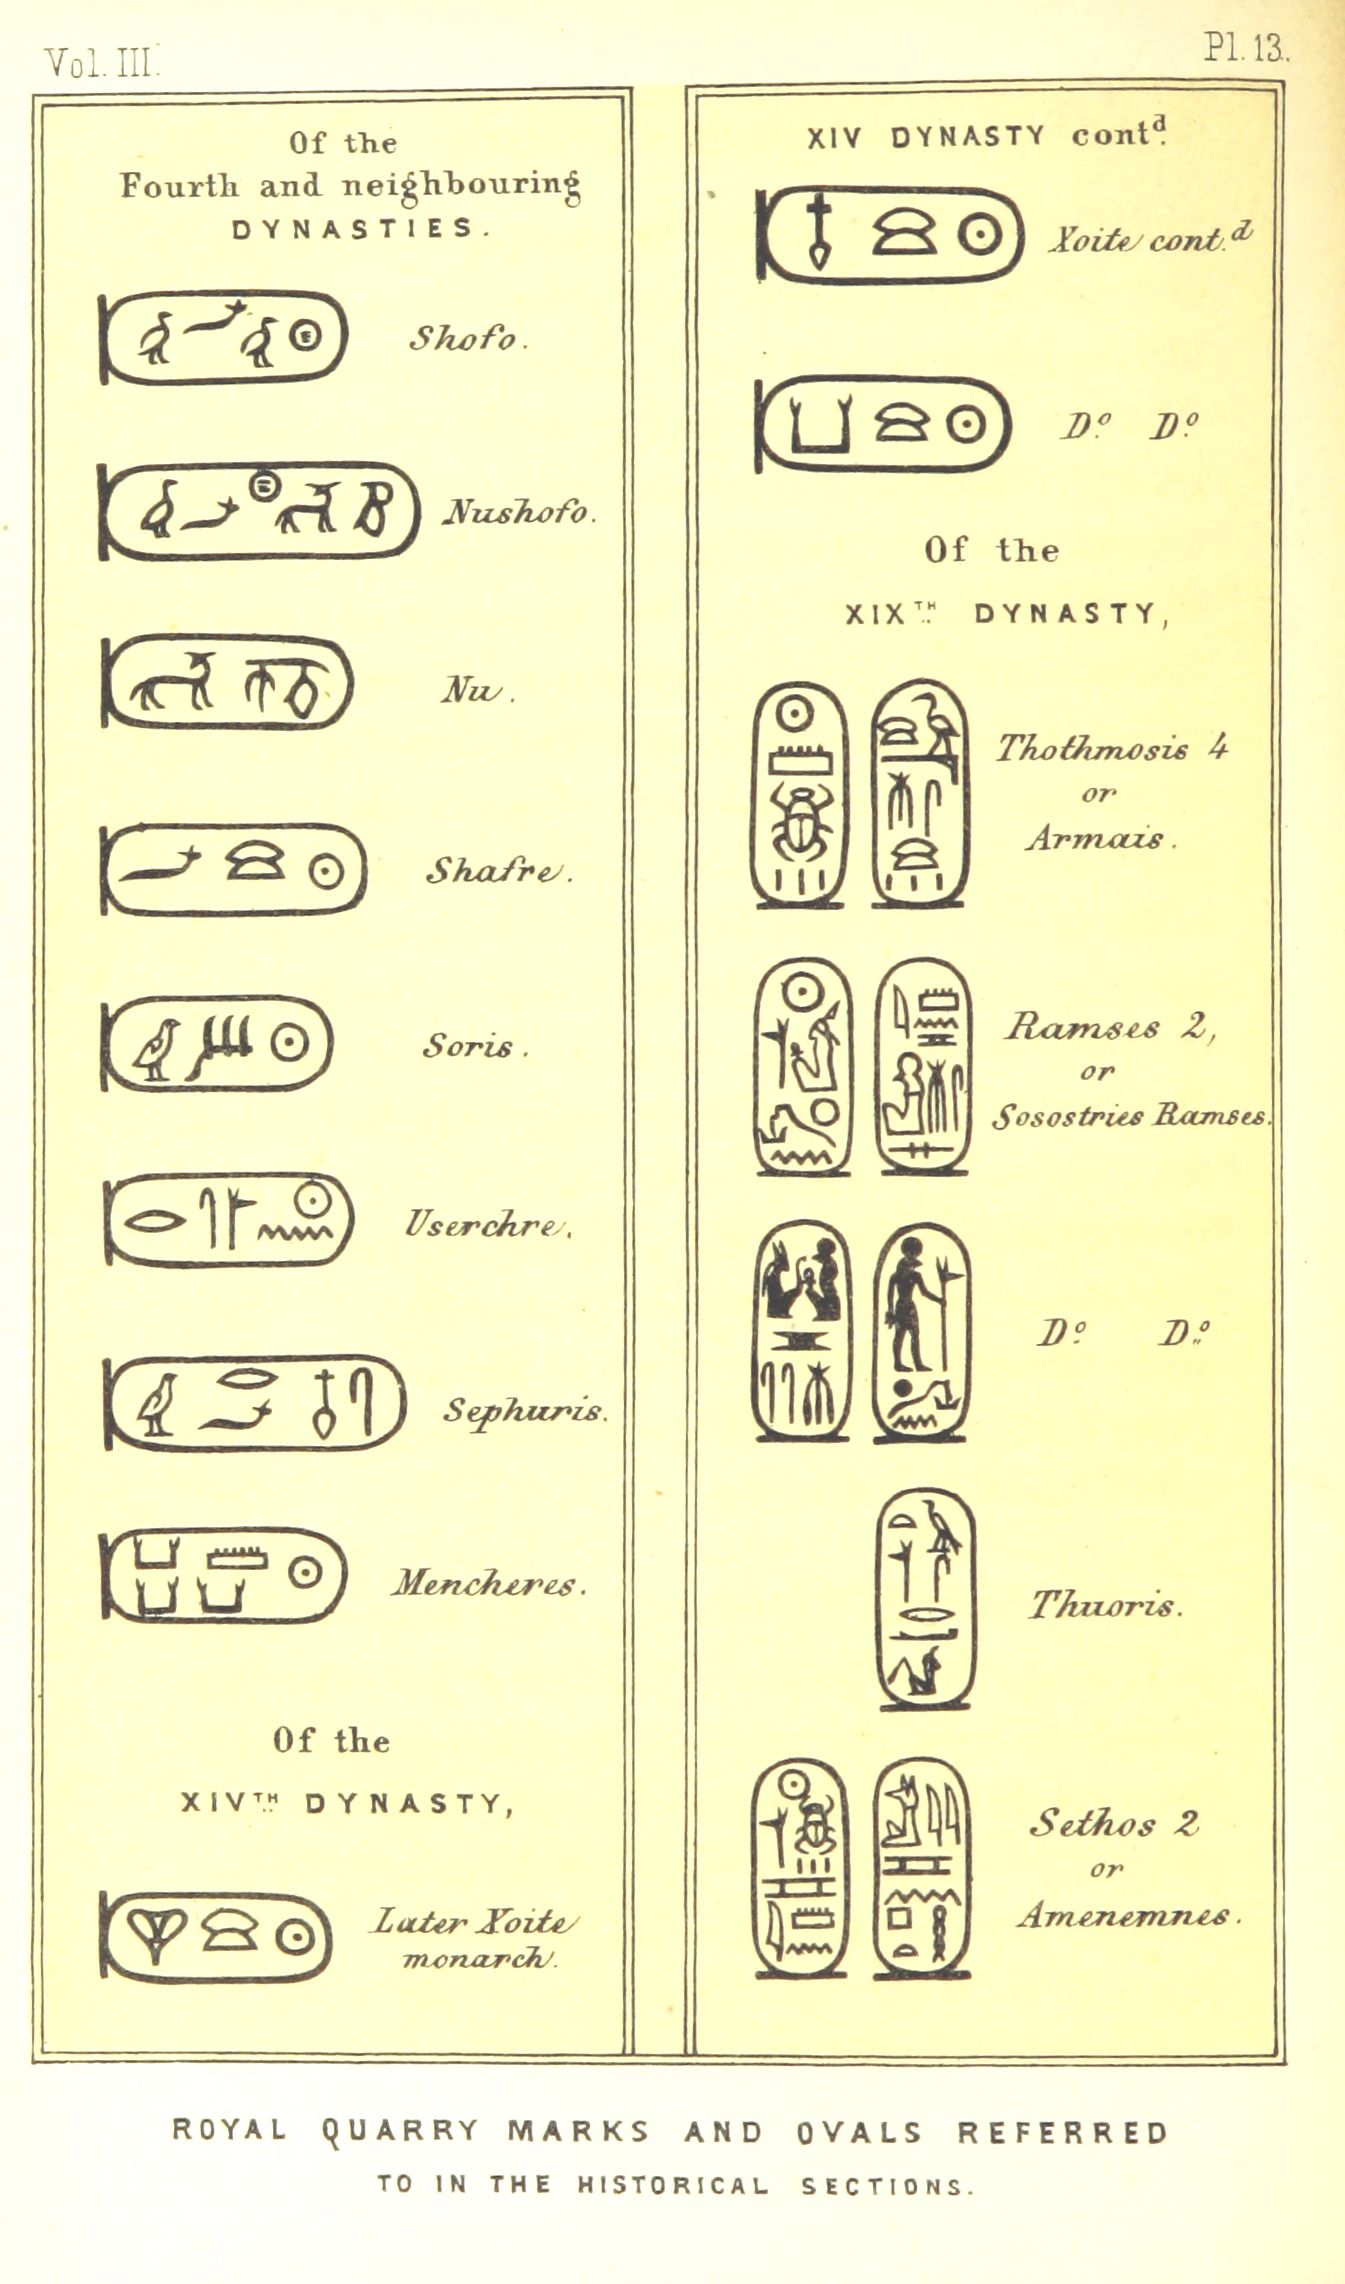 Vol. III.
Pl. 13.
Of the
Fourth and neighbouring
DYNASTIES.
Shofo.
Nushofo.
Nu.
Shafre.
Soris.
Userchre.
Sephuris.
Mencheres.
Of the
XIVTH DYNASTY,
Later Xoite
monarch.
XIV DYNASTY contd.
Xoite cont.d
Do. Do.
Of the
XIXTH DYNASTY,
Thothmosis 4
or
Armais.
Ramses 2,
or
Sosostries Ramses.
Do. Do.
Thuoris.
Sethos 2
or
Amenemnes.
ROYAL QUARRY MARKS AND OVALS REFERRED
TO IN THE HISTORICAL SECTIONS.